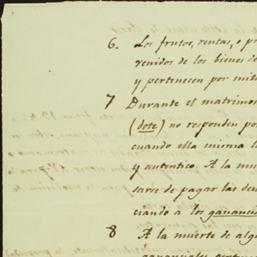 6. Los frutos, rentas, o p
venidos de los bienes d
y pertenecen por mit
7 Durante el matrimon
(dote) no responden po
cuando ella misma l
y autentico. A la mu
sarse de pagar las deu
ciando á los gananci
8 A la muerte de alg